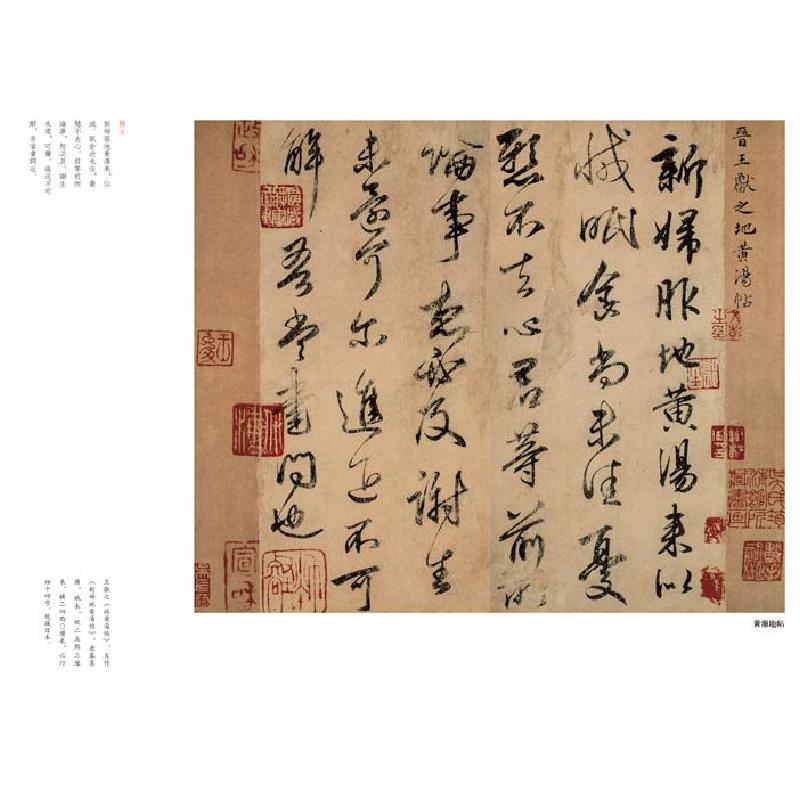 晉王獻之地黃湯帖
新婦服地黃湯來似
減眠食尚未佳憂
懸不去心君等前所
論事想必及謝生
未還可爾進退不可
解吾當書問也
黃湯地帖
釋文
新婦服地黃湯來，似
減。眠食尚未佳，憂
懸不去心。君等前所
論事，想必及。謝生
未還，可爾。進退不可
解，吾當書問也。
王獻之《地黃湯帖》，又作
《新婦地黃湯帖》，唐摹墨
跡，紙本，縱二五點三厘
米，橫二四點〇厘米，六行
四十四字，現藏日本。